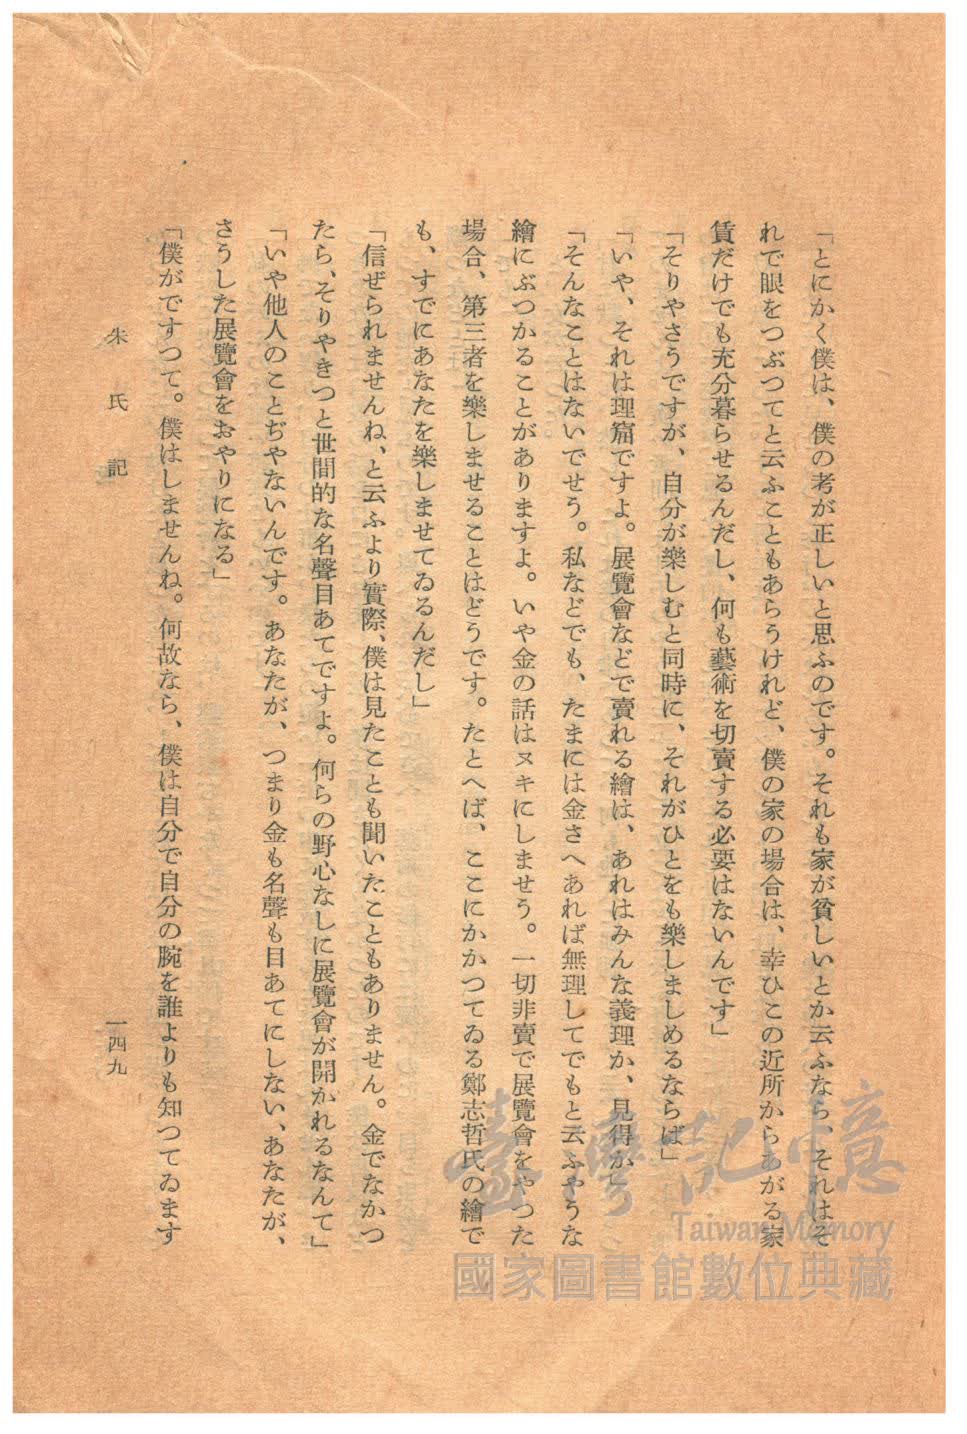 「とにかく僕は、僕の考が正しいと思ふのです。それも家が貧しいとか云ふなら、それはそ
れで眼をつぶつてと云ふこともあらうけれど、僕の家の場合は、幸ひこの近所からあがる家
賃だけでも充分暮らせるんだし、何も藝術を切賣する必要はないんです」
「そりやさうですが、自分が樂しむと同時に、それがひとをも樂しましめるならば」
「いや、それは理窟ですよ。展覽會などで賣れる繪は、あれはみんな義理か、見得か」
「そんなことはないでせう。私などでも、たまには金さへあれば無理してでもと云ふやうな
繪にぶつかることがありますよ。いや金の話はヌキにしませう。一切非賣で展覽會をやつた
場合、第三者を樂しませることはどうです。たとへば、ここにかかつてゐる鄭志哲氏の繪で
も、すでにあなたを樂しませてゐるんだし」
「信ぜられませんね、と云ふより實際、僕は見たことも聞いたこともありません。金でなかつ
たら、そりやきつと世間的な名聲目あてですよ。何らの野心なしに展覽會が開かれるなんて」
「いや他人のことぢやないんです。あなたが、つまり金も名聲も目あてにしない、あなたが、
さうした展覽會をおやりになる」
「僕がですつて。僕はしませんね。何故なら、僕は自分で自分の腕を誰よりも知つてゐます
朱氏記
一四九
臺灣記憶
Taiwan Memory
國家圖書館數位典藏